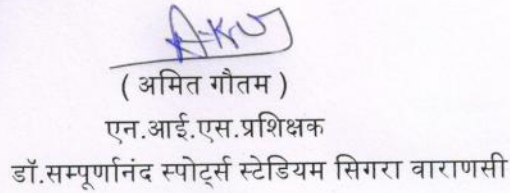 ( अमित गौतम )
एन.आई.एस.प्रशिक्षक
डॉ.सम्पूर्णानंद स्पोर्ट्स स्टेडियम सिगरा वाराणसी